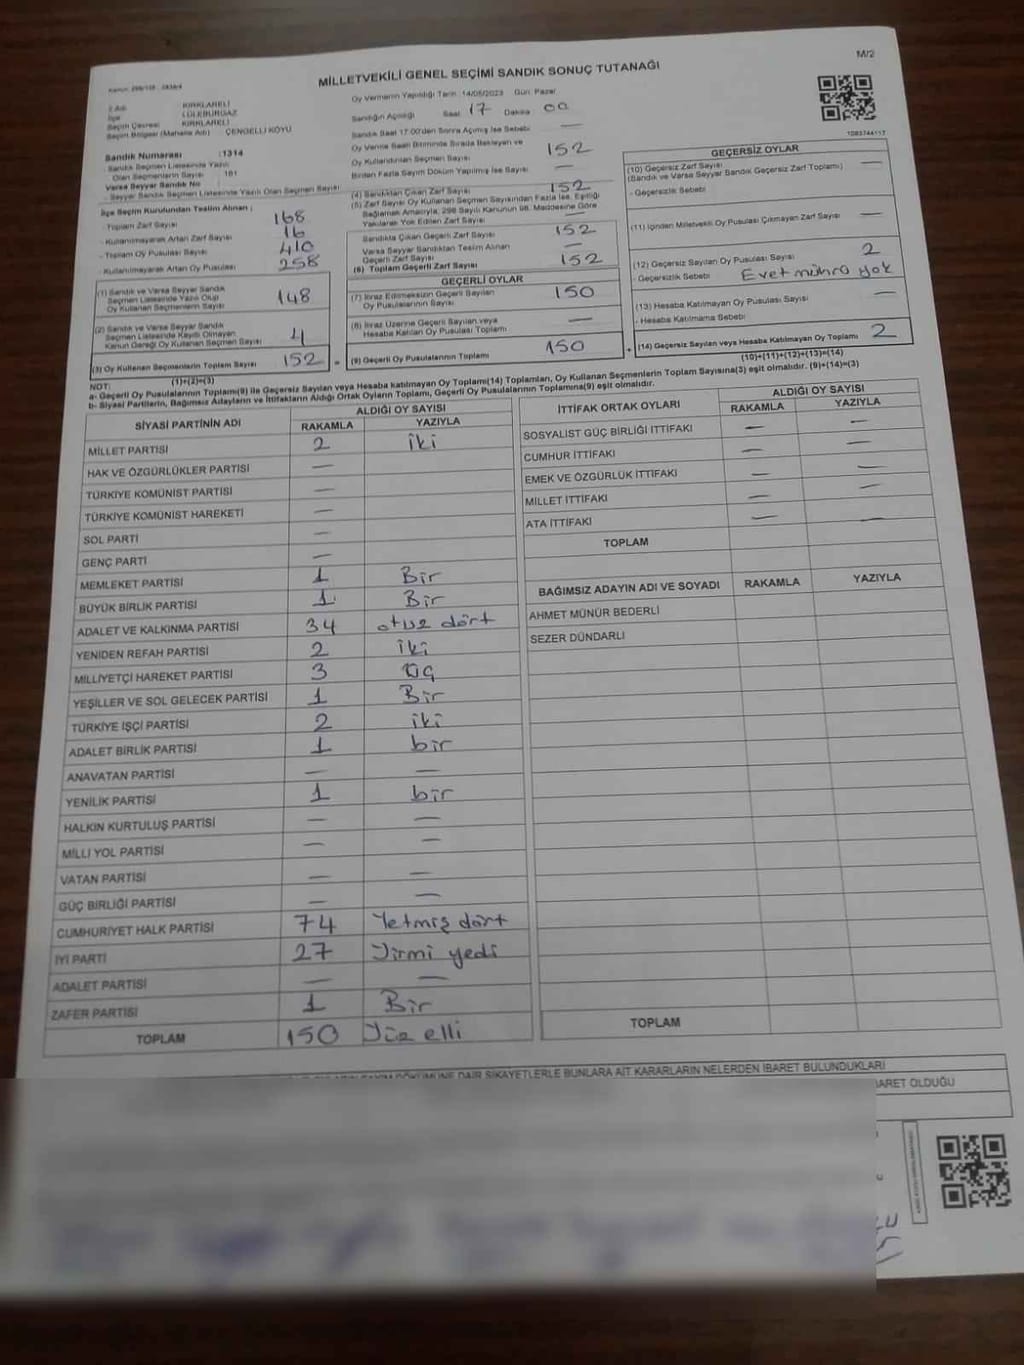 M/2
MİLLETVEKİLİ GENEL SEÇİMİ SANDIK SONUÇ TUTANAĞI
Oy Vermenin Yapıldığı Tarih: 14/05/2023 Gün: Pazar
İl Adı KIRKLARELİ
İlçe LÜLEBURGAZ
Seçim Çevresi KIRKLARELİ
Seçim Bölgesi (Mahalle Adı) ÇENGELLİ KÖYÜ
Sandık Numarası :1314
Sandık Seçmen Listesinde Yazılı
Olan Seçmenlerin Sayısı 161
Varsa Seyyar Sandık No
- Seyyar Sandık Seçmen Listesinde Yazılı Olan Seçmen Sayısı
İlçe Seçim Kurulundan Teslim Alınan ;
- Toplam Zarf Sayısı 168
- Kullanılmayarak Artan Zarf Sayısı 16
- Toplam Oy Pusulası Sayısı 410
- Kullanılmayarak Artan Oy Pusulası 258
(1) Sandık ve Varsa Seyyar Sandık
Seçmen Listesinde Yazılı Olup
Oy Kullanan Seçmenlerin Sayısı 148
(2) Sandık ve Varsa Seyyar Sandık
Seçmen Listesinde Kaydı Olmayan
Kanun Gereği Oy Kullanan Seçmen Sayısı 4
(3) Oy Kullanan Seçmenlerin Toplam Sayısı 152
(1)+(2)=(3)
Sandığın Açıldığı Saat 17 Dakika 00
Sandık Saat 17.00'den Sonra Açılmış İse Sebebi —
Oy Verme Saati Bitiminde Sırada Bekleyen ve
Oy Kullandırılan Seçmen Sayısı 152
Birden Fazla Sayım Döküm Yapılmış İse Sayısı —
(4) Sandıktan Çıkan Zarf Sayısı 152
(5) Zarf Sayısı Oy Kullanan Seçmen Sayısından Fazla İse, Eşitliği
Sağlamak Amacıyla, 298 Sayılı Kanunun 98. Maddesine Göre
Yakılarak Yok Edilen Zarf Sayısı —
Sandıkta Çıkan Geçerli Zarf Sayısı 152
Varsa Seyyar Sandıktan Teslim Alınan
Geçerli Zarf Sayısı —
(6) Toplam Geçerli Zarf Sayısı 152
GEÇERLİ OYLAR
(7) İtiraz Edilmeksizin Geçerli Sayılan
Oy Pusulalarının Sayısı 150
(8) İtiraz Üzerine Geçerli Sayılan veya
Hesaba Katılan Oy Pusulası Toplamı —
= (9) Geçerli Oy Pusulalarının Toplamı 150
1083744117
GEÇERSİZ OYLAR
(10) Geçersiz Zarf Sayısı
(Sandık ve Varsa Seyyar Sandık Geçersiz Zarf Toplamı) —
- Geçersizlik Sebebi
(11) İçinden Milletvekili Oy Pusulası Çıkmayan Zarf Sayısı —
(12) Geçersiz Sayılan Oy Pusulası Sayısı 2
- Geçersizlik Sebebi Evet mührü yok
(13) Hesaba Katılmayan Oy Pusulası Sayısı —
- Hesaba Katılmama Sebebi
+ (14) Geçersiz Sayılan veya Hesaba Katılmayan Oy Toplamı 2
(10)+(11)+(12)+(13)=(14)
NOT:
a- Geçerli Oy Pusulalarının Toplamı(9) ile Geçersiz Sayılan veya Hesaba katılmayan Oy Toplamı(14) Toplamları, Oy Kullanan Seçmenlerin Toplam Sayısına(3) eşit olmalıdır. (9)+(14)=(3)
b- Siyasi Partilerin, Bağımsız Adayların ve İttifakların Aldığı Ortak Oyların Toplamı, Geçerli Oy Pusulalarının Toplamına(9) eşit olmalıdır.
SİYASİ PARTİNİN ADI ALDIĞI OY SAYISI
RAKAMLA YAZIYLA
MİLLET PARTİSİ 2 iki
HAK VE ÖZGÜRLÜKLER PARTİSİ —
TÜRKİYE KOMÜNİST PARTİSİ —
TÜRKİYE KOMÜNİST HAREKETİ —
SOL PARTİ —
GENÇ PARTİ —
MEMLEKET PARTİSİ 1 Bir
BÜYÜK BİRLİK PARTİSİ 1 Bir
ADALET VE KALKINMA PARTİSİ 34 otuz dört
YENİDEN REFAH PARTİSİ 2 iki
MİLLİYETÇİ HAREKET PARTİSİ 3 üç
YEŞİLLER VE SOL GELECEK PARTİSİ 1 Bir
TÜRKİYE İŞÇİ PARTİSİ 2 iki
ADALET BİRLİK PARTİSİ 1 bir
ANAVATAN PARTİSİ — —
YENİLİK PARTİSİ 1 bir
HALKIN KURTULUŞ PARTİSİ — —
MİLLİ YOL PARTİSİ — —
VATAN PARTİSİ — —
GÜÇ BİRLİĞİ PARTİSİ — —
CUMHURİYET HALK PARTİSİ 74 Yetmiş dört
İYİ PARTİ 27 Yirmi yedi
ADALET PARTİSİ — —
ZAFER PARTİSİ 1 Bir
TOPLAM 150 Yüz elli
İTTİFAK ORTAK OYLARI ALDIĞI OY SAYISI
RAKAMLA YAZIYLA
SOSYALİST GÜÇ BİRLİĞİ İTTİFAKI — —
CUMHUR İTTİFAKI — —
EMEK VE ÖZGÜRLÜK İTTİFAKI — —
MİLLET İTTİFAKI — —
ATA İTTİFAKI — —
TOPLAM
BAĞIMSIZ ADAYIN ADI VE SOYADI RAKAMLA YAZIYLA
AHMET MÜNÜR BEDERLİ
SEZER DÜNDARLI
TOPLAM
DÖKÜMÜNE DAİR ŞİKAYETLERLE BUNLARA AİT KARARLARIN NELERDEN İBARET BULUNDUKLARI
İBARET OLDUĞU